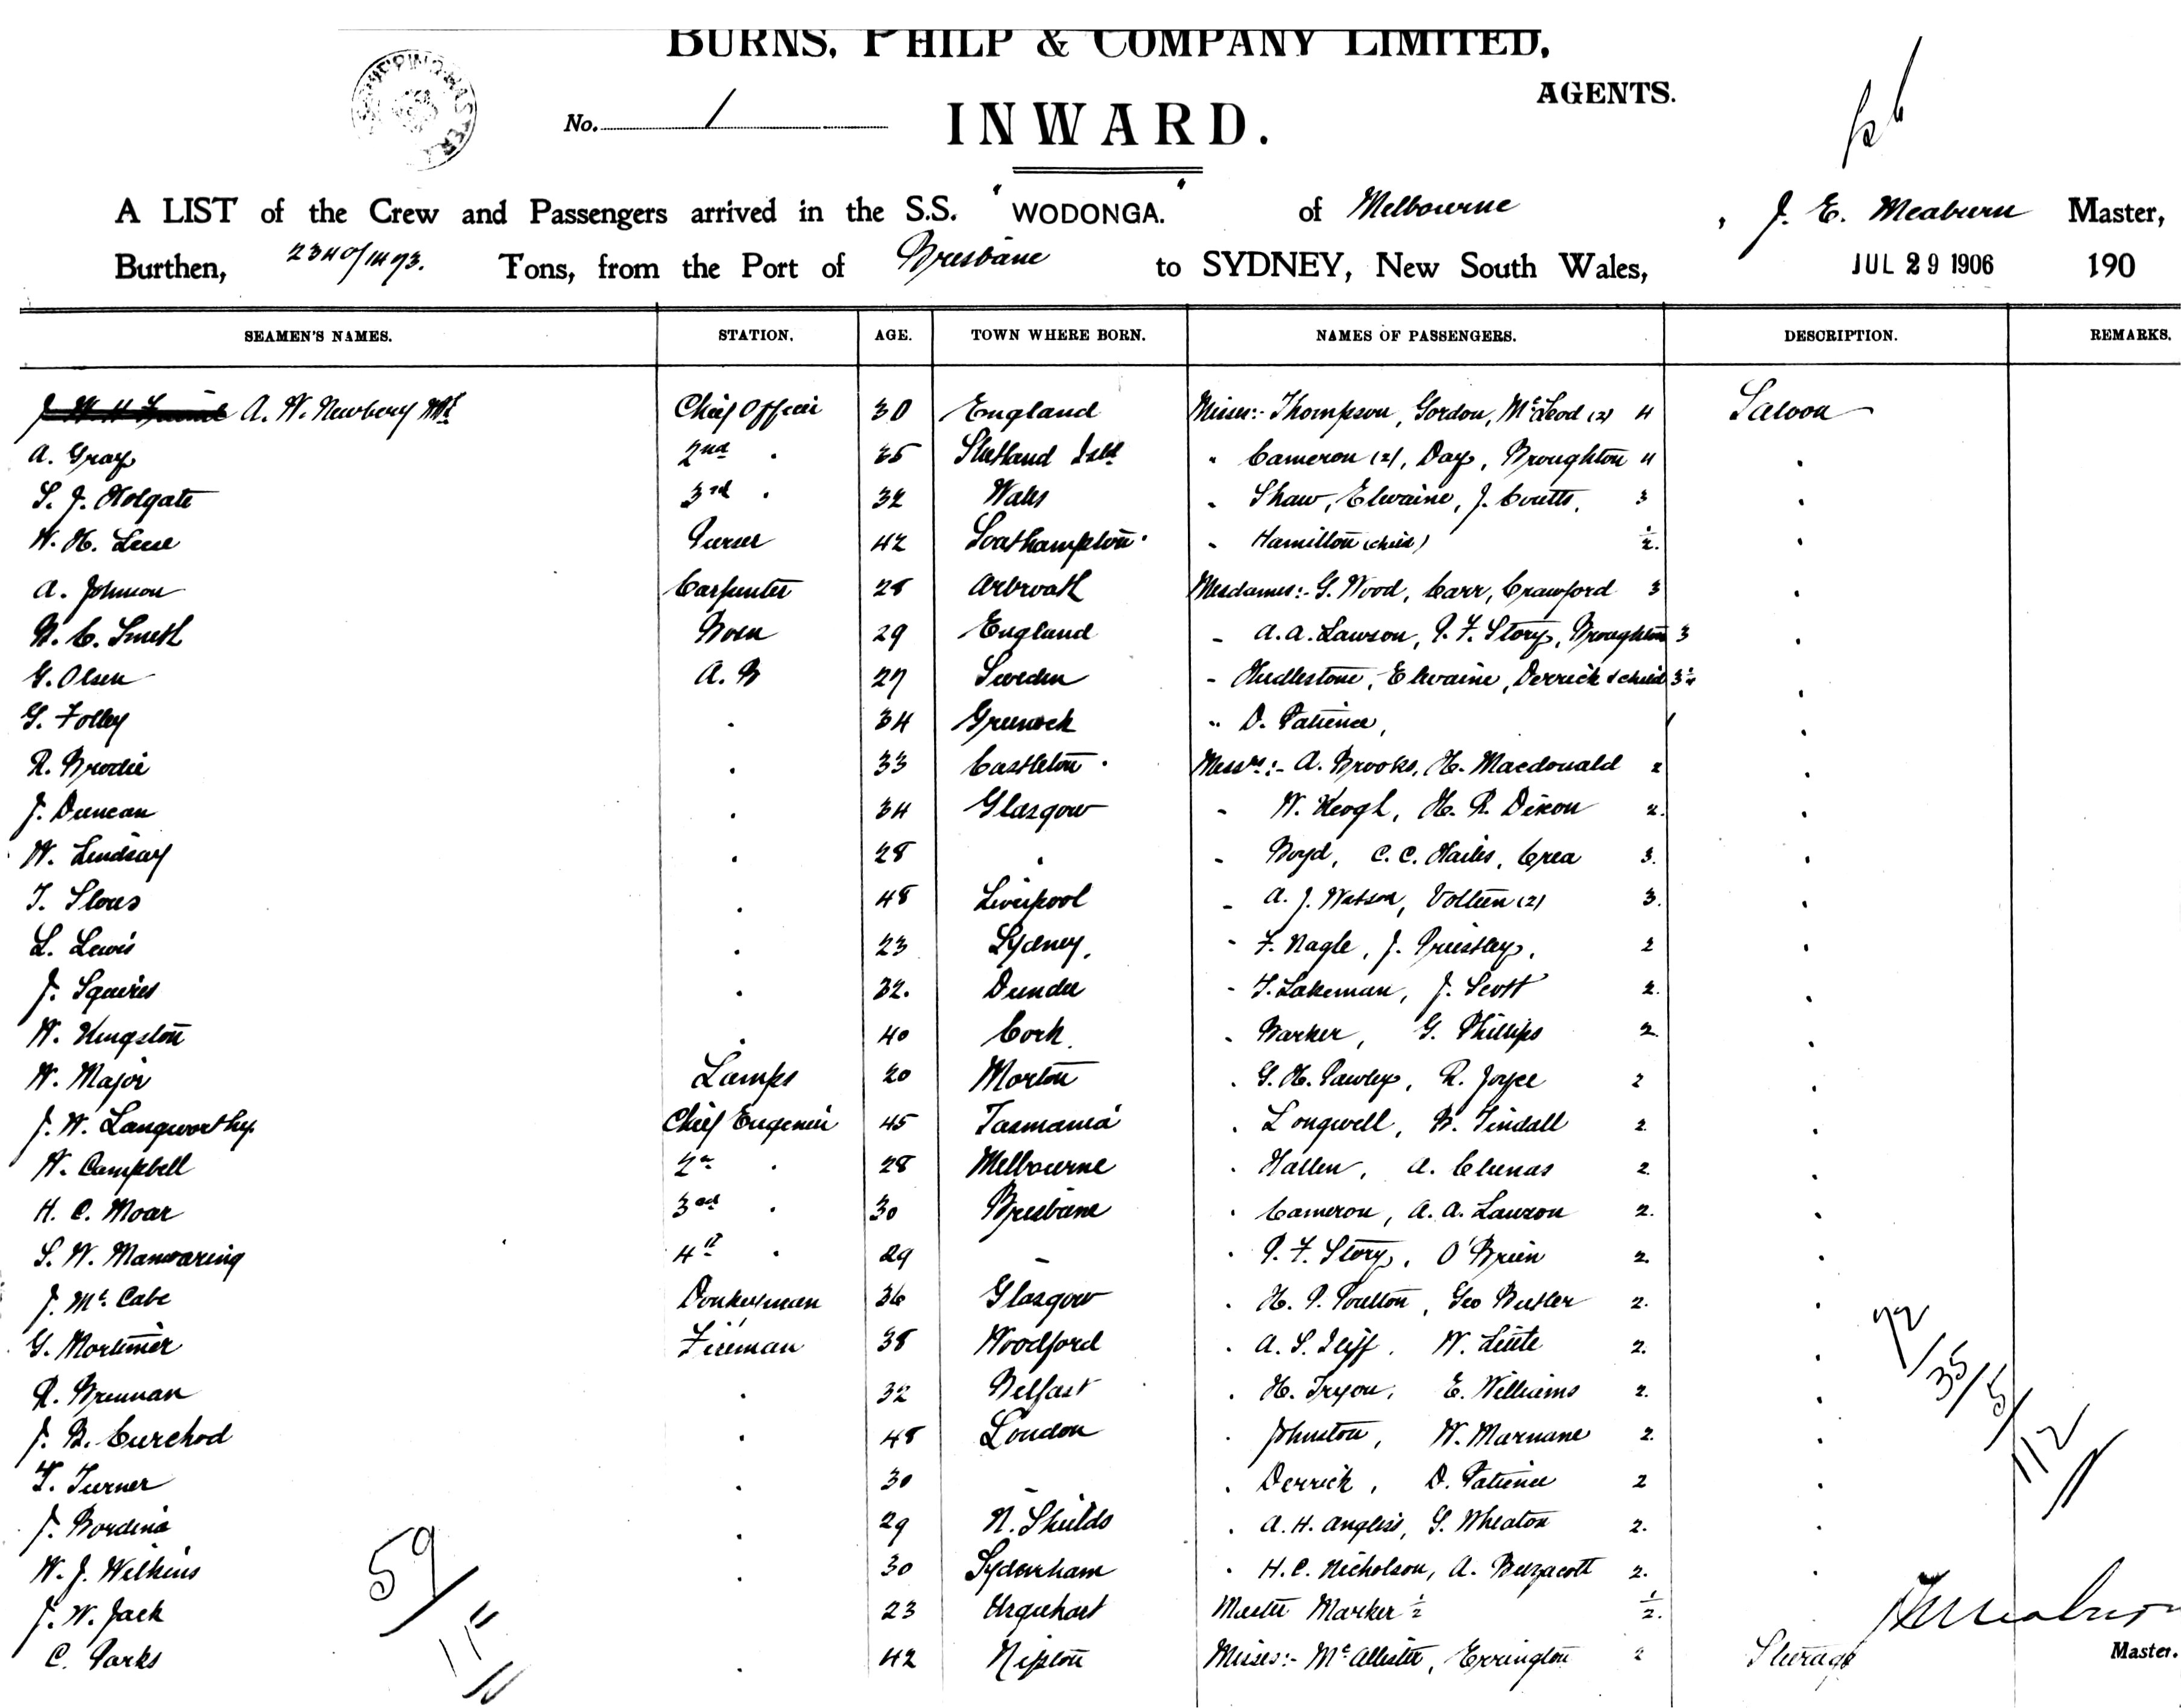 BURNS, PHILP & COMPANY LIMITED,
AGENTS.
No. 1
INWARD.
A LIST of the Crew and Passengers arrived in the S.S. "WODONGA." of Melbourne, J. E. Meaburn Master,
Burthen, 2340/1473. Tons, from the Port of Brisbane to SYDNEY, New South Wales, JUL 29 1906 190
SEAMEN'S NAMES. STATION. AGE. TOWN WHERE BORN. NAMES OF PASSENGERS. DESCRIPTION. REMARKS.
A. W. Newbery Chief Officer 30 England Misses:- Thompson, Gordon, McLeod (2) 4 Saloon
A. Gray 2nd " 35 Shetland Isld " Cameron (2), Day, Broughton 4 "
S. J. Holgate 3rd " 32 Wales " Shaw, Elwaine, J. Coutts, 3 "
W. H. Luse Purser 42 Southampton " Hamilton (child) 1/2. "
A. Johnson Carpenter 28 Arbroath Mesdames:- G. Wood, Carr, Crawford 3 "
N. C. Smith Bosn 29 England " A. A. Lawson, P. F. Story, Broughton 3 "
G. Olsen A. B 27 Sweden " Hudlestone, Elwaine, Derrick & child 3 1/2 "
G. Folley " 34 Greenock " D. Patience, 1 "
R. Brodie " 33 Castleton Messrs:- A. Brooks, H. Macdonald 2 "
J. Duncan " 34 Glasgow " W. Keogh, H. R. Dixon 2. "
W. Lindsay " 28 " " Boyd, C. C. Hailes, Crea 3. "
T. Slows " 48 Liverpool " A. J. Watson, (2) 3. "
L. Lewis " 23 Sydney. " F. Nagle, J. Priestley, 2 "
J. Squires " 32. Dundee " T. Lakeman, J. Scott 2. "
W. Kingston " 40 Cork. " Barker, G. Phillips 2. "
W. Major Lamps 20 Morton " G. H. Pawley, R. Joyce 2 "
J. W. Langworthy Chief Engineer 45 Tasmania " Longwell, B. Tindall 2. "
W. Campbell 2nd " 28 Melbourne " Hallen, A. Clunas 2. "
H. C. Moar 3rd " 30 Brisbane " Cameron, A. A. Lawson 2. "
S. W. Manwaring 4th " 29 " " P. F. Story, O'Brien 2. "
J. McCabe Donkeyman 36 Glasgow " H. P. Poulton, Geo Butler 2. "
G. Mortimer Fireman 38 Woodford " A. S. Iliff, W. Leete 2. "
R. Brennan " 32 Belfast " H. Tryon, E. Williams 2. "
J. B. Curchod " 48 London " Johnston, W. Marnane 2. "
T. Turner " 30 " " Derrick, D. Patience 2 "
J. Bordina " 29 N. Shields " A. H. Angliss, G. Wheaton 2. "
W. J. Wilkins " 30 Sydenham " H. C. Nicholson, A. Buzacott 2. "
J. W. Jack 23 Urquhart Master Marker 1/2 1/2. "
C. Parks " 42 Misses:- McAllister, Errington 2 Steerage
72/35/5/112
59/
Master.